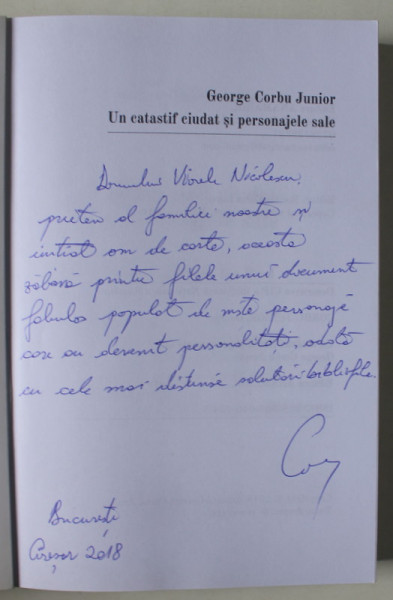 George Corbu Junior
Un catastif ciudat și personajele sale
Domnului Viorele Nicolescu,
prieten al familiei noastre și
inițiat om de carte, aceasta
zăbavă printre filele unui document
fabulos populat de niște personaje
care au devenit personalități, odată
cu cele mai distinse salutări bibliofile
București
Cireșar 2018